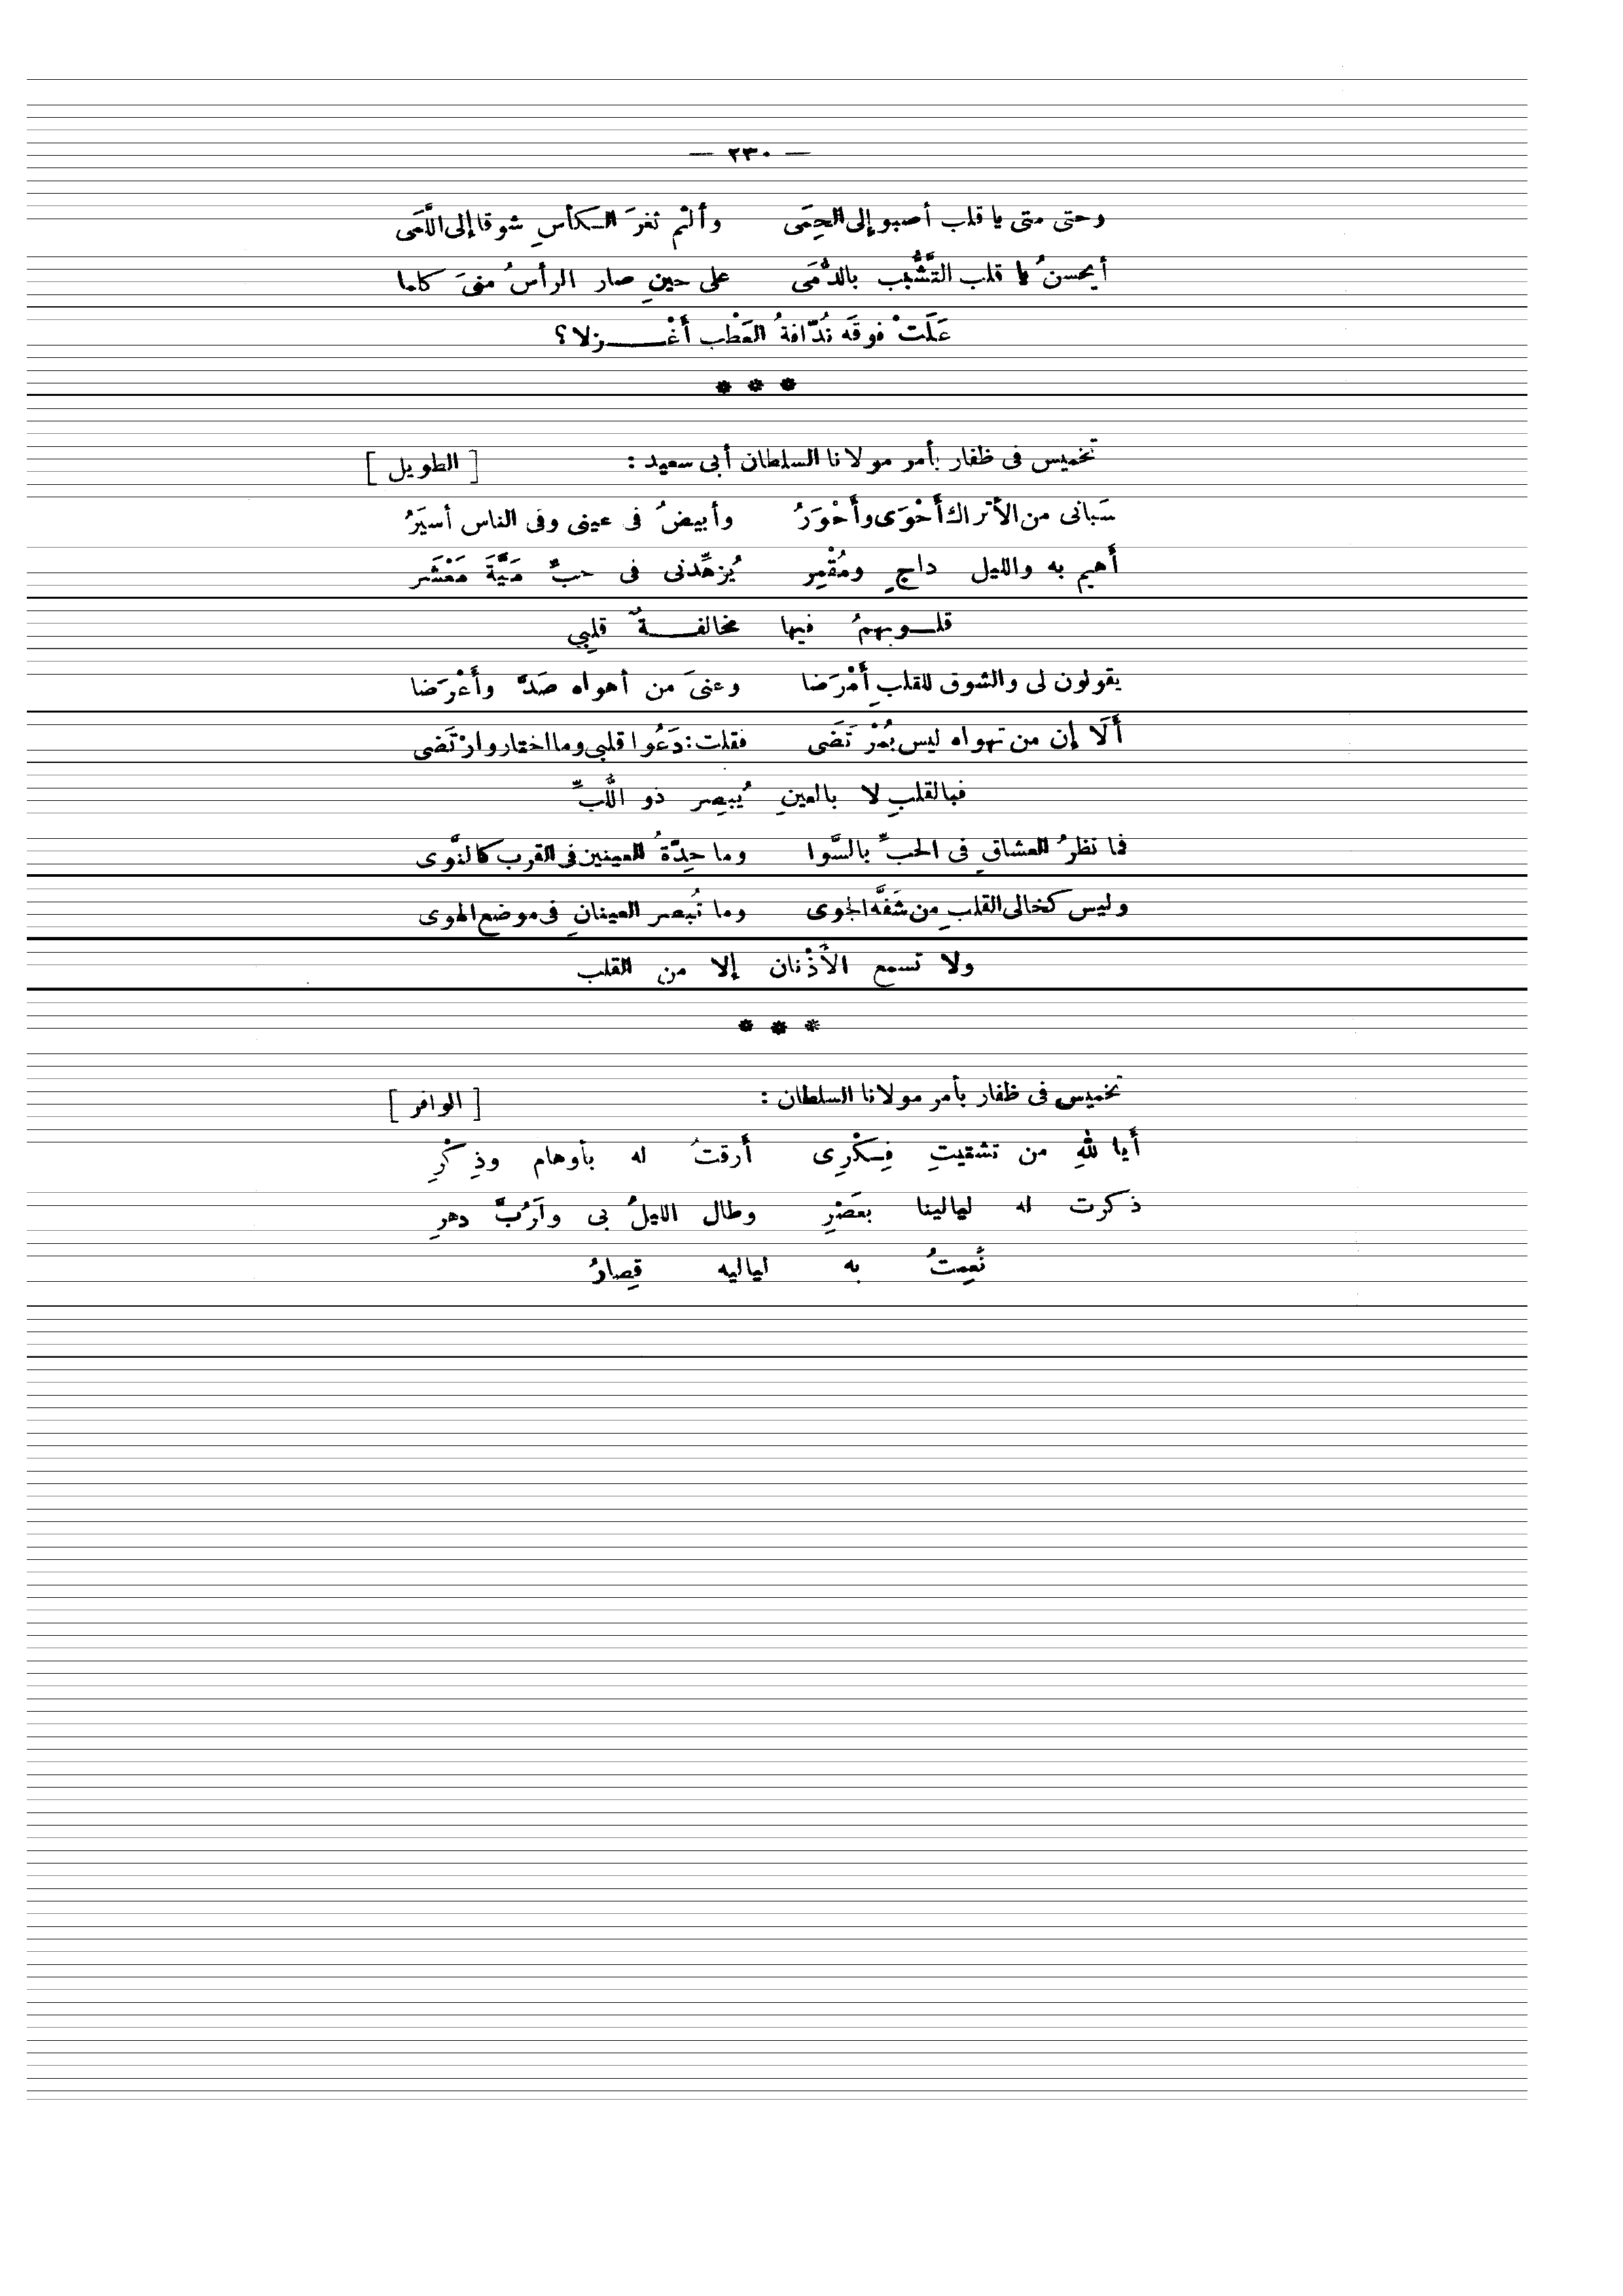 — ٢٣٠ —
وحتى متى يا قلب أصبو إلى الحِمَى وألثم ثغرَ الكأسِ شوقا إلى اللَّمَى
أيحسنُ يا قلب التَّشَبُّب بالدُّمَى على حينِ صار الرأسُ منىَ كلما
عَلَتْ فوقه نُدّافةُ العَطْب أغْـــزلا؟
* * *
تخميس فى ظفار بأمر مولانا السلطان أبى سعيد : [ الطويل ]
سَبانى من الأتراك أَحْوَى وأَحْوَرُ وأبيضُ فى عينى وفى الناس أسيَرُ
أَهيم به والليل داجٍ ومُقْمِر يُزهِّدنى فى حبِّ مَيَّةَ مَعْشَر
قلــوبهمُ فيها مخالفــةٌ قلبِي
يقولون لى والشوق للقلبِ أَمْرَضا وعنىَ من أهواه صَدَّ وأَعْرَضا
أَلَا إن من تهواه ليس بمُرْتَضَى فقلت: دَعُوا قلبى وما اختار وارْتَضى
فبالقلبِ لا بالعينِ يُبصِر ذو اللُّبِّ
فما نظرُ العشاقِ فى الحبِّ بالسَّوا وما حِدّةُ العينين فى القرب كالنَّوى
وليس كخالى القلبِ من شَفَّه الجوى وما تُبصر العينانِ فى موضع الهوى
ولا تسمع الأُذْنان إلا من القلب
* * *
تخميس فى ظفار بأمر مولانا السلطان : [ الوافر ]
أَيا للهِ من تشتيتِ فِكْرِى أَرقتُ له بأوهام وذِكْرِ
ذكرت له ليالينا بعَصْرِ وطال الليلُ بى ولَرُبَّ دهرِ
نَعِمتُ به لياليه قِصارُ